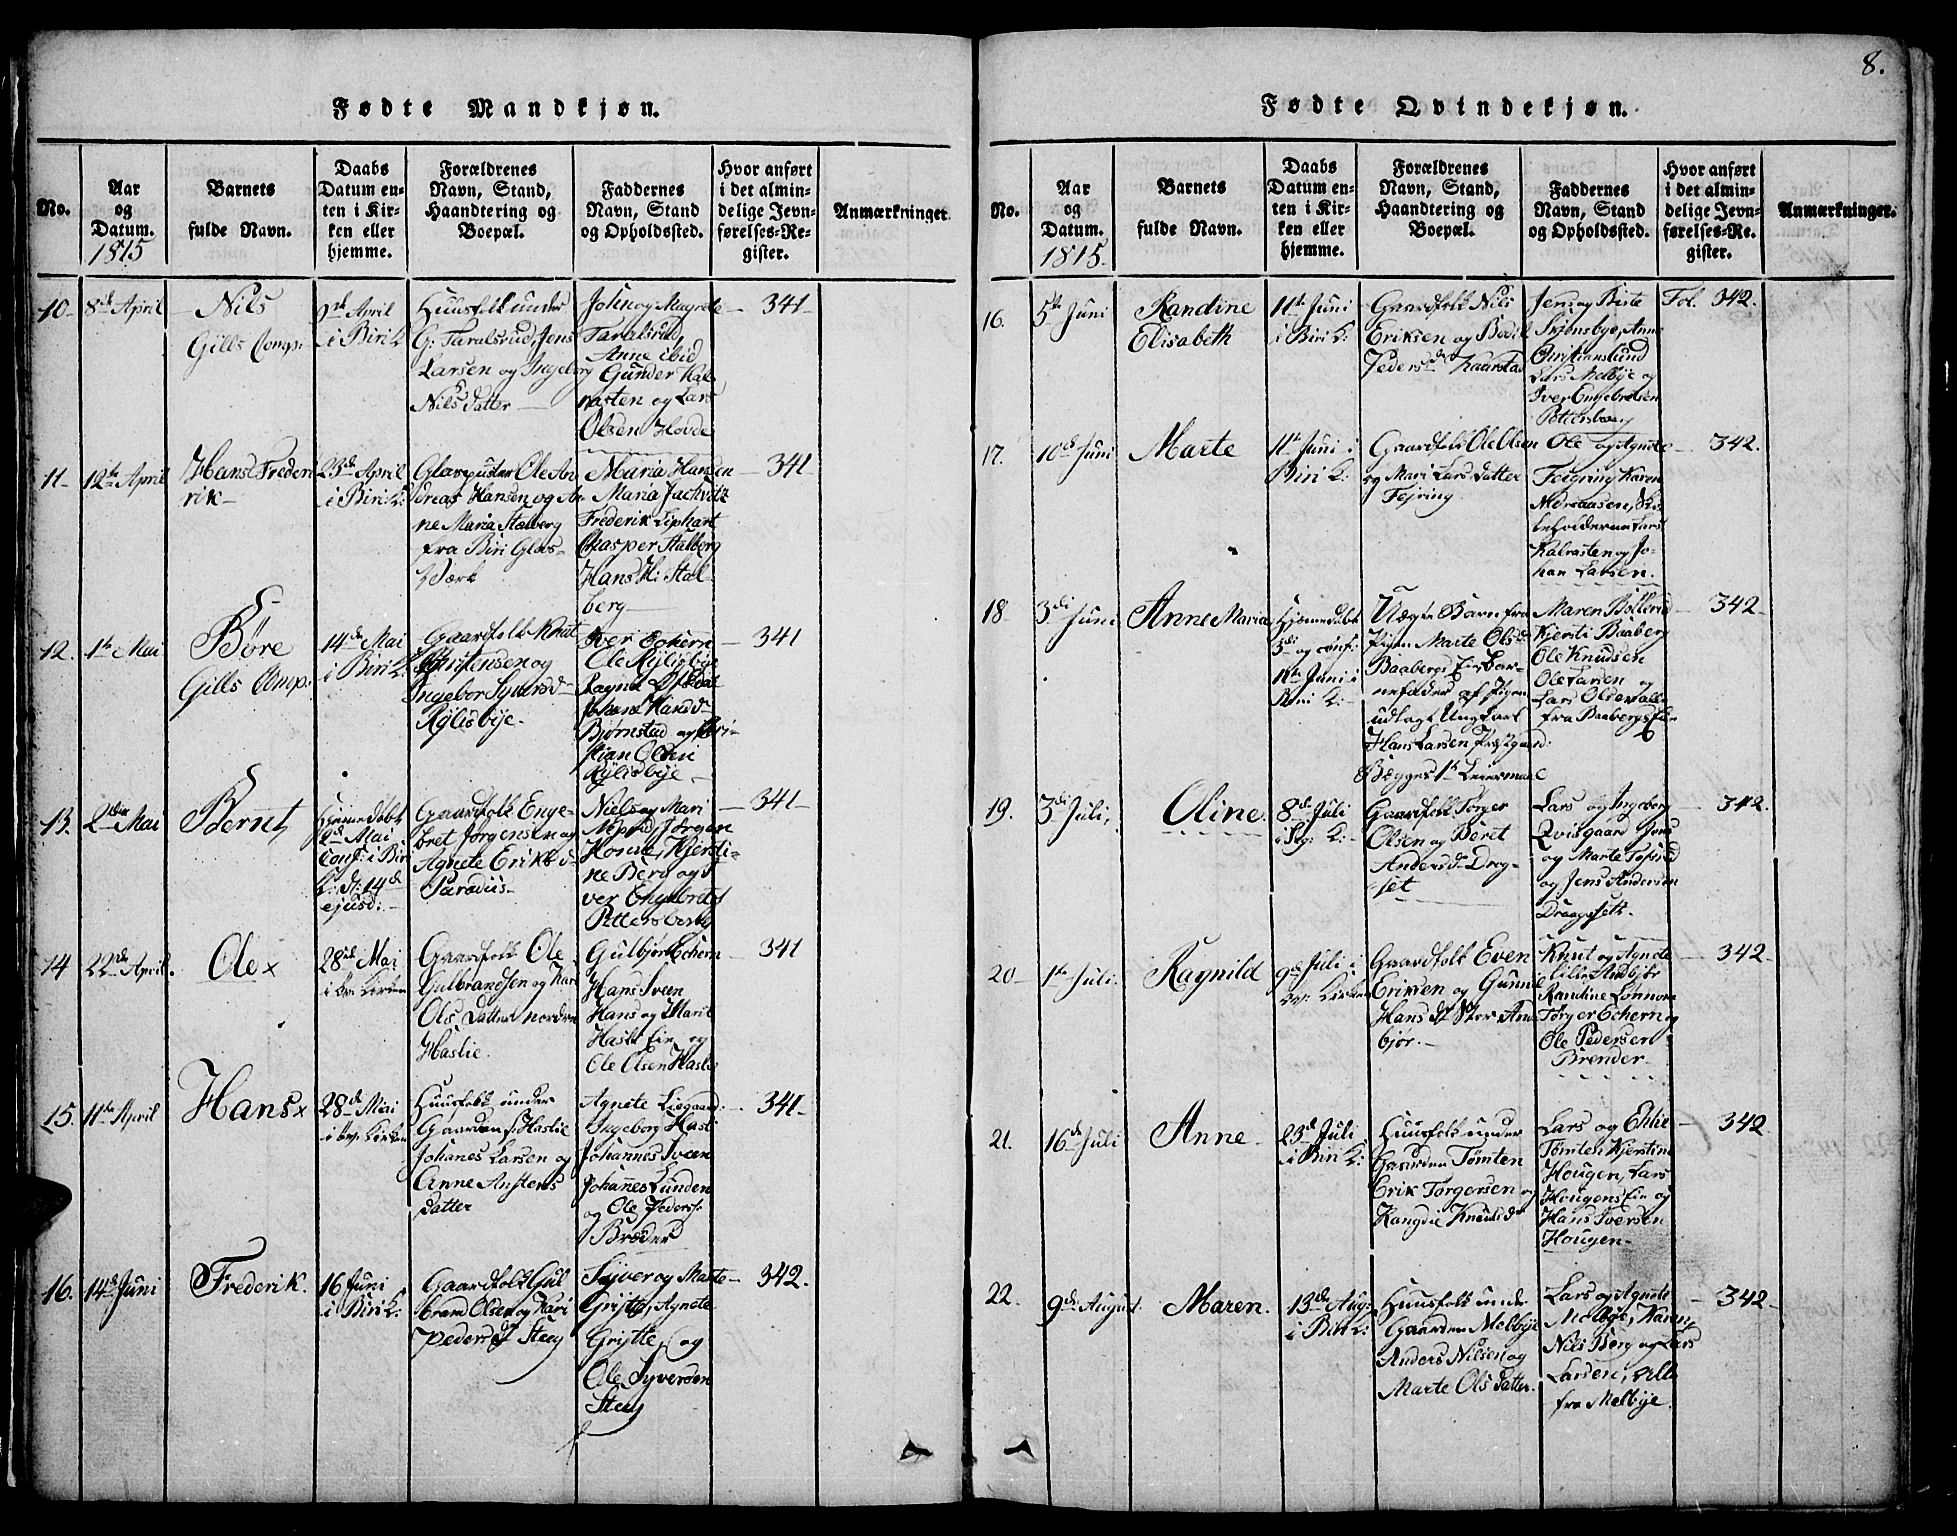 Fødte Mandkjøn.
No.
Aar
og
Datum.
1815
Barnets
fulde Navn.
Daabs
Datum en-
ten i Kir-
ken eller
hjemme.
Forældrenes
Navn, Stand,
Haandtering og
Boepæl.
Faddernes
Navn, Stand
og Opholdssted.
Hvor anført
i det almin-
delige Jevn-
førelses-Re-
gister.
Anmærkninger
10
8de April
Nils
Gills Comp:
9de April
i Biri K:
Huusfolk under
G: Taralsrud, Jens
Larsen og Ingeborg
Nils datter
John og Magrete
Taralsrud,
Anne ibid
Gunder Kal-
rasten og Lars
Olsen Hovde
341
11
12te April
Hans Frede-
rik
23de April
i Biri K:
Glarpuster Ole An-
dreas Hansen og An-
ne Maria Stalberg
fra Biri Glas-
Værk
Maria Hansen
Maria
Frederik Liphart
Chasper Stalberg
Hans H: Stal-
berg
341
12.
1te Mai
Børe
Gills Comp:
14de Mai
i Biri K:
Gaardfolk Knut
Christensen og
Ingebor Syversd
Rylisbye
Iver Echern
Ole Rylisbye
Ragne
Bjørnstad og Kri-
stian Olsen
Rylisbye
341
13.
2den Mai
Bernt
Hjemmedøbt
2de Mai
conf: i Biri
K: d: 14de
ejusd:
Gaardfolk Enge-
bret Jørgensen og
Agnete Eriksd
Paradiis
Niels og Mari
Jørgen
Honne, Kjersti-
ne Berg og I-
ver Engebrets
Pettersberg
341
14
22de April.
Ole x
28de Mai
i Kirken
Gaardfolk Ole
Gulbrandsen og Kari
Ols Datter nordre
Haslie.
Gulbjør Echern
Hans Sveen
Hans og Marit
Haslie Eie og
Ole Olsen Haslie
341
15.
11te April
Hans x
28de Mai
i Kirken
Huusfolk under
Gaarden s: Haslie
Johanes Larsen og
Anne Anfters
datter
Agnete Liegaard
Ingeborg Hasli
Johannes Sveen
Johannes Lunden
og Ole Peders:
Bræder
341
16.
14de Juni
Frederik.
16 Juni
i Biri K:
Gaardfolk Gul
brand Olsen og Kari
Pedersd Steeg
Syver og Marte
Grytte, Agnete
Grytte, og
Ole Syversen
Steeg
342.
8.
Fødte Qvindekjøn.
No.
Aar
og
Datum.
1815.
Barnets
fulde Navn.
Daabs
Datum en-
ten i Kir-
ken eller
hjemme.
Forældrenes
Navn, Stand,
Haandtering og
Boepæl.
Faddernes
Navn, Stand
og Opholdssted.
Hvor anført
i det almin-
delige Jevn-
førelses-Re-
gister.
Anmærkninger.
16.
5te Juni
Randine
Elisabeth
11te Juni
i Biri K:
Gaardfolk Nils
Eriksen og Bodil
Pedersd Kaarstad
Jens og Birte
Skjønsbye, Anne
Christianslund
Lars Melbye og
Iver Engebretsen
Pettersberg
Fol. 342.
17.
10de Juni
Marte
11te Juni i
Biri K:
Gaardfolk Ole Olsen
og Mari Lars datter
Fejring
Ole og Agnete
Feiring Karen
Nedreaasen,
beholderne Lars
Kalrasten og Jo-
han Larsen.
342.
18
3di Juni
Anne Maria
Hjemmedøbt
3di og conf:
11te Juni i
Biri K:
Uægte Barn fra
Pigen Marte Olsd
Baabergs Eie Bar-
nefader af Pigen
udlagt Ungkarl
Hans Larsen Præstgaard
Begges 1te Leiermaal
Maren Bollerud
Kjersti Baaberg
Ole Knudsen
Ole Larsen og
Lars Olsen alle
fra Baabergs Eie
342
19.
3di Juli,
Oline.
8de Juli
i Sg: K:
Gaardfolk Torger
Olsen og Beret
Andersd Dreg-
set
Lars og Ingeborg
Qvisgaard Jens
og Marte Tofsrud
og Jens Andersen
Draagseth.
342.
20
1te Juli.
Ragnild
9de Juli i
Kirken
Gaardfolk Even
Eriksen og Gunnil
Hansdt Stor And-
bjør.
Knut og Agnete
Lille Andbjør
Randine Lønnon
Torger Echern og
Ole Pedersen
Brender
342
21.
16de Juli
Anne
23de Juli
i Biri K:
Huusfolk under
Gaarden Tømten
Erik Torgersen og
Rangdie Knudsd
Lars og Ehlie
Tømten Kjerstine
Hougen, Lars
Hougens Eie og
Hans Iversen
Hougen
342.
22.
9de August.
Maren.
13de Aug:
i Biri K:
Huusfolk under
Gaarden Melbye
Anders Nilsen og
Marte Ols datter.
Lars og Agnete
Melbye, Karen,
Nils Berg og Lars
Larsen, alle
fra Melbye.
342